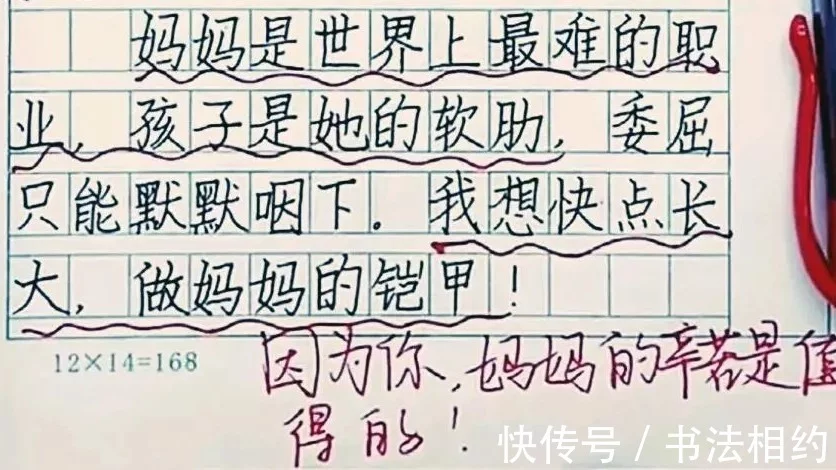 妈妈是世界上最难的职
业，孩子是她的软肋，委屈
只能默默咽下。我想快点长
大，做妈妈的铠甲！
12×14=168
因为你，妈妈的辛苦是值
得的！
快传号／书法相约